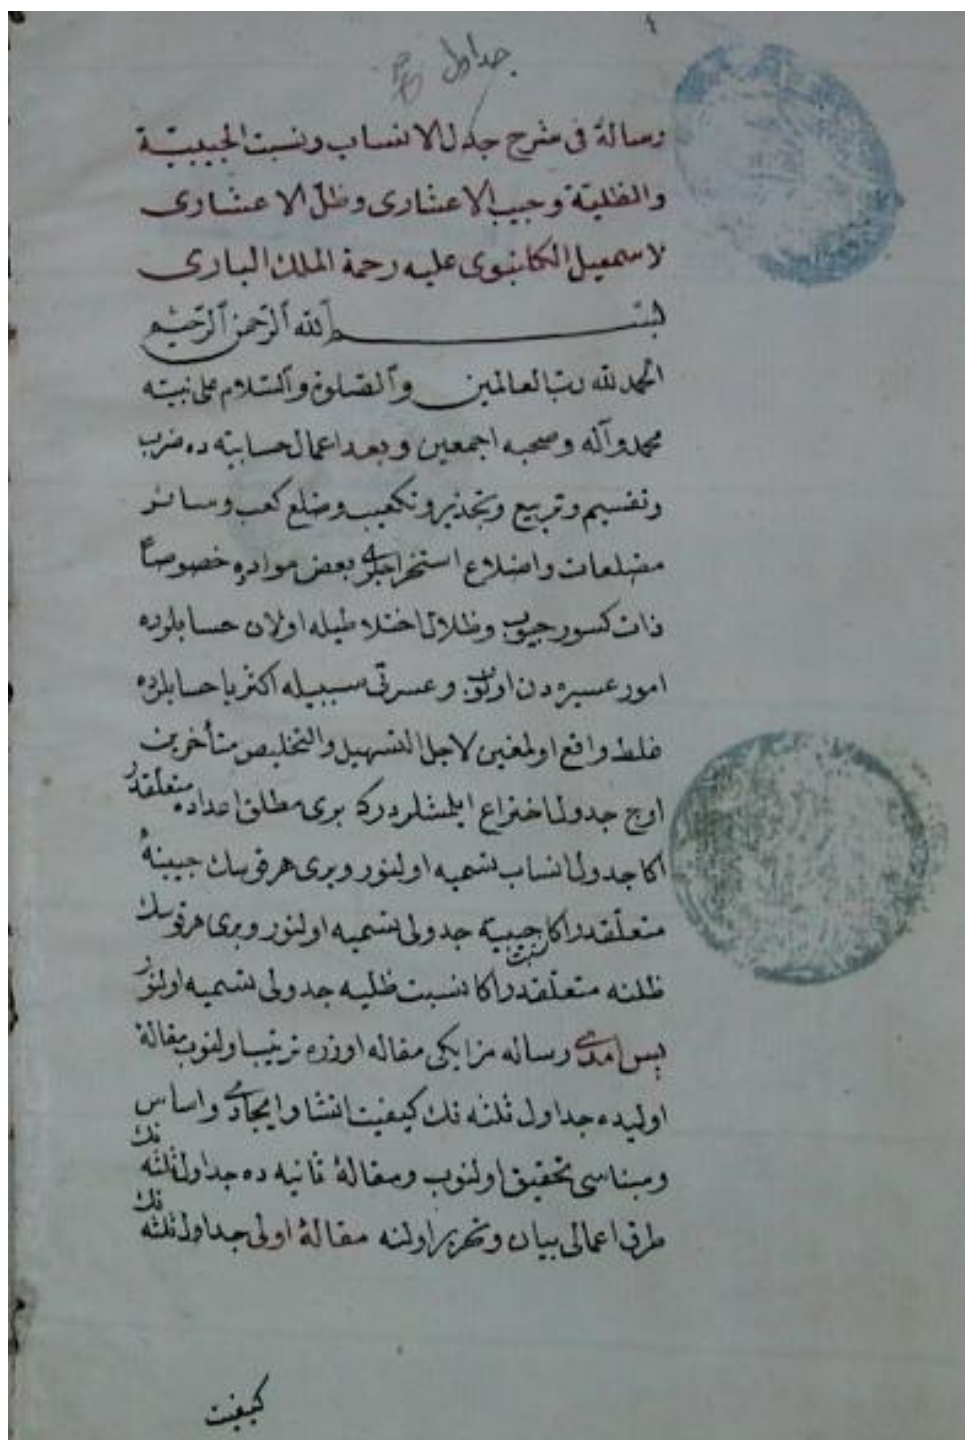 جداول
رسالة فى شرح جدول الانساب ونسبت الجيبية
والظلية وجيب الاعشارى وظل الاعشارى
لاسمعيل الكلنبوى عليه رحمة الملك البارى
بسم الله الرحمن الرحيم
الحمد لله رب العالمين والصلوة والسلام على نبيه
محمد وآله وصحبه اجمعين وبعد اعمال حسابيه ده ضرب
وتقسيم وتربيع وتجذير وتكعيب وضلع كعب وسائر
مضلعات واضلاع استخراجلرى بعض مواده خصوصاً
ذات كسور جيوب وظلال اختلاطيله اولان حسابلرده
امور عسيره دن اولوب وعسرتى سببيله اكثريا حسابلرده
غلط واقع اولمغين لاجل التسهيل والتخليص متأخرين
اوج جدول اختراع ايلمشلردركه برى مطلق اعداده متعلقدر
اكا جدول انساب تسميه اولنور وبرى هر قوسك جيبنه
متعلقدر اكا نسبت جيبية جدولى تسميه اولنور وبرى هر قوسك
ظلنه متعلقدر اكا نسبت ظليه جدولى تسميه اولنور
پس امدى رساله مز ايكى مقاله اوزره ترتيب اولنوب مقالۀ
اوليده جداول ثلثه نك كيفيت انشا وايجادى واساس
ومبناسى تحقيق اولنوب ومقالۀ ثانيه ده جداول ثلثه نك
طرق اعمالى بيان وتحرير اولنه مقالۀ اولى جداول ثلثه نك
كيفيت